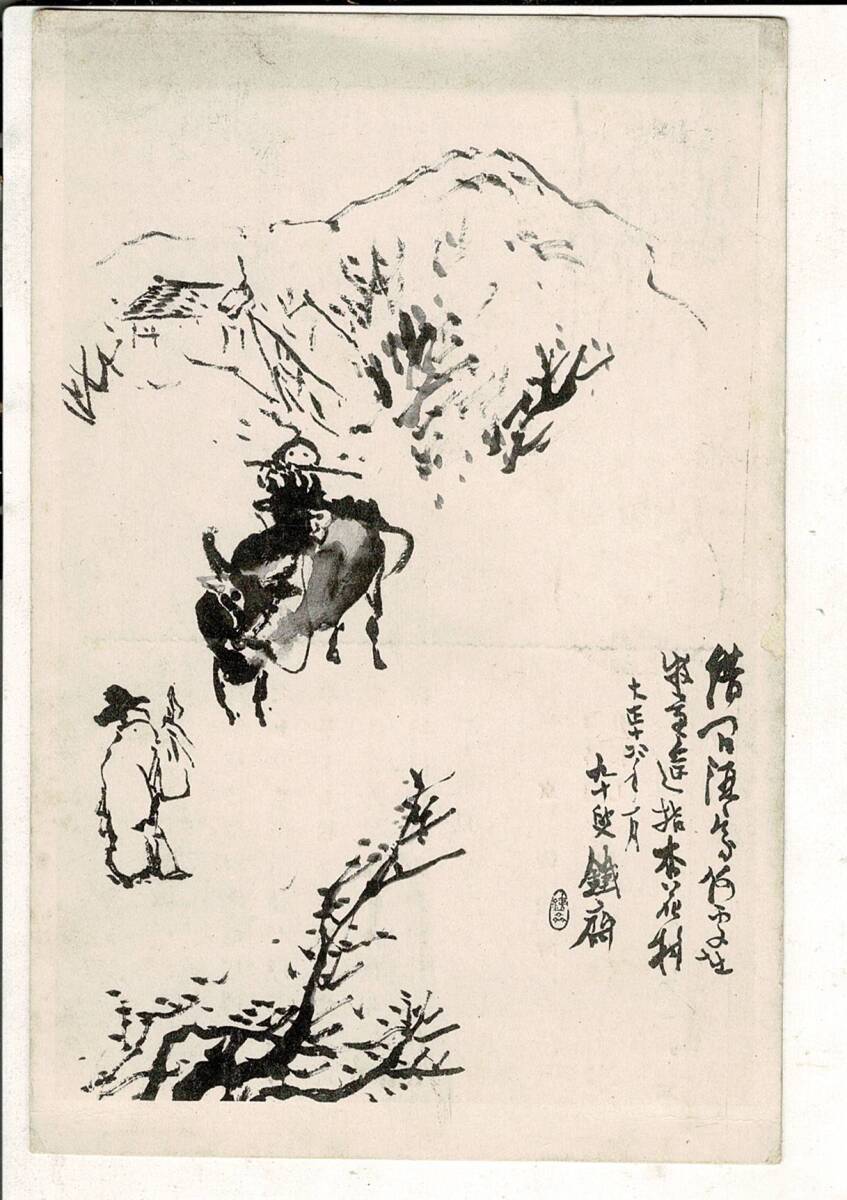 借問酒家何處在
牧童遙指杏花村
大正十四年一月
九十叟鐵齋